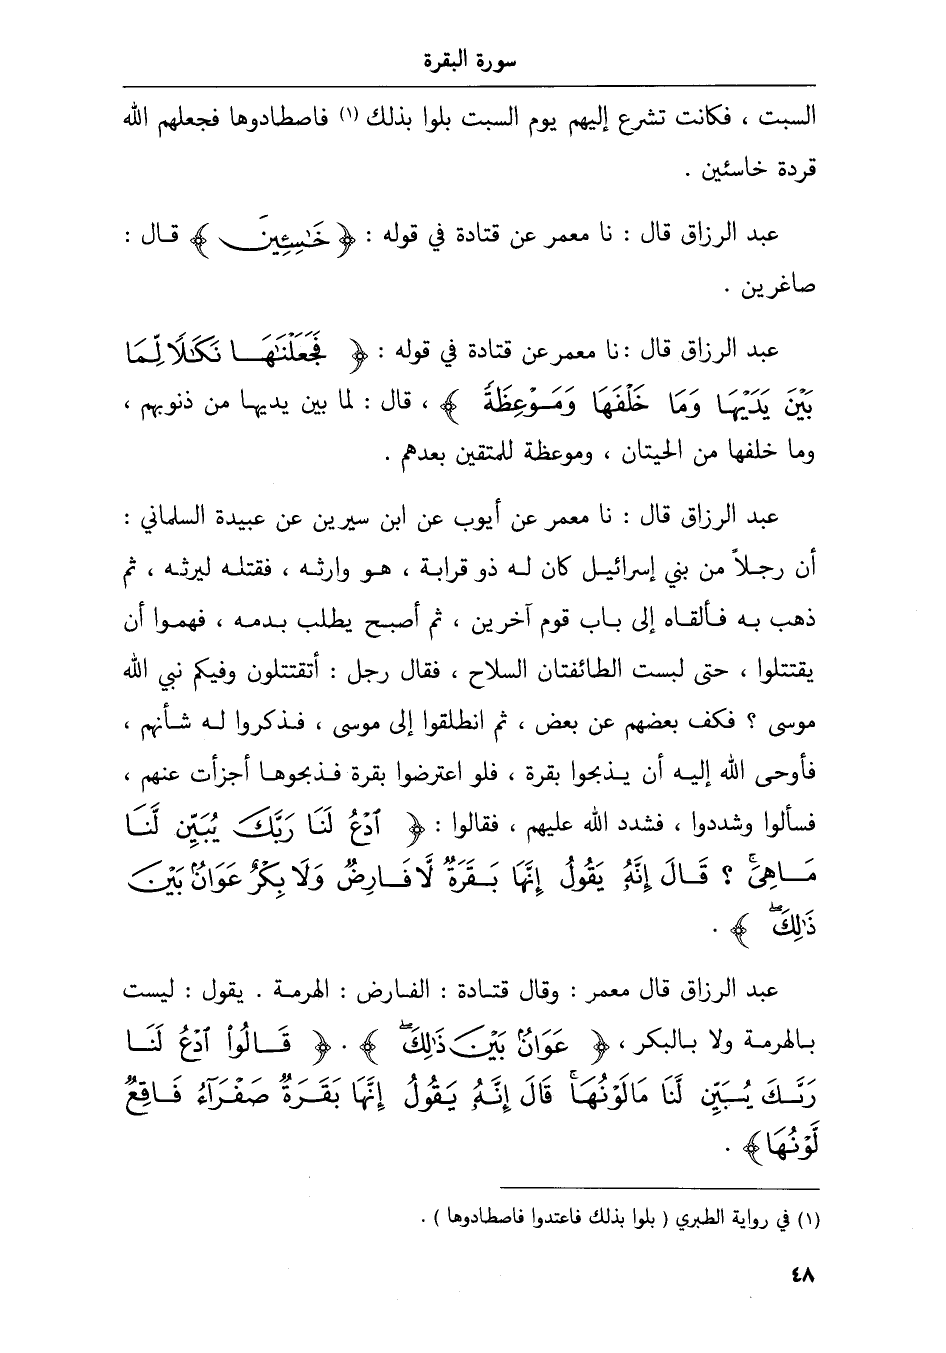 سورة البقرة
السبت ، فكانت تشرع إليهم يوم السبت بلوا بذلك (١) فاصطادوها فجعلهم الله
قردة خاسئين .
عبد الرزاق قال : نا معمر عن قتادة في قوله : ﴿ خَٰسِـِٔينَ ﴾ قال :
صاغرين .
عبد الرزاق قال : نا معمر عن قتادة في قوله : ﴿ فَجَعَلْنَٰهَا نَكَٰلًا لِّمَا
بَيْنَ يَدَيْهَا وَمَا خَلْفَهَا وَمَوْعِظَةً ﴾ ، قال : لما بين يديها من ذنوبهم ،
وما خلفها من الحيتان ، وموعظة للمتقين بعدهم .
عبد الرزاق قال : نا معمر عن أيوب عن ابن سيرين عن عبيدة السلماني :
أن رجلاً من بني إسرائيل كان له ذو قرابة ، هو وارثه ، فقتله ليرثه ، ثم
ذهب به فألقاه إلى باب قوم آخرين ، ثم أصبح يطلب بدمه ، فهموا أن
يقتتلوا ، حتى لبست الطائفتان السلاح ، فقال رجل : أتقتتلون وفيكم نبي الله
موسى ؟ فكف بعضهم عن بعض ، ثم انطلقوا إلى موسى ، فذكروا له شأنهم ،
فأوحى الله إليه أن يذبحوا بقرة ، فلو اعترضوا بقرة فذبحوها أجزأت عنهم ،
فسألوا وشددوا ، فشدد الله عليهم ، فقالوا : ﴿ ٱدْعُ لَنَا رَبَّكَ يُبَيِّن لَّنَا
مَا هِىَ ۚ ؟ قَالَ إِنَّهُۥ يَقُولُ إِنَّهَا بَقَرَةٌ لَّا فَارِضٌ وَلَا بِكْرٌ عَوَانٌۢ بَيْنَ
ذَٰلِكَ ۖ ﴾ .
عبد الرزاق قال معمر : وقال قتادة : الفارض : الهرمة . يقول : ليست
بالهرمة ولا بالبكر ، ﴿ عَوَانٌۢ بَيْنَ ذَٰلِكَ ۖ ﴾ . ﴿ قَالُوا۟ ٱدْعُ لَنَا
رَبَّكَ يُبَيِّن لَّنَا مَا لَوْنُهَا ۚ قَالَ إِنَّهُۥ يَقُولُ إِنَّهَا بَقَرَةٌ صَفْرَآءُ فَاقِعٌ
لَّوْنُهَا ﴾ .
(١) في رواية الطبري ( بلوا بذلك فاعتدوا فاصطادوها ) .
٤٨